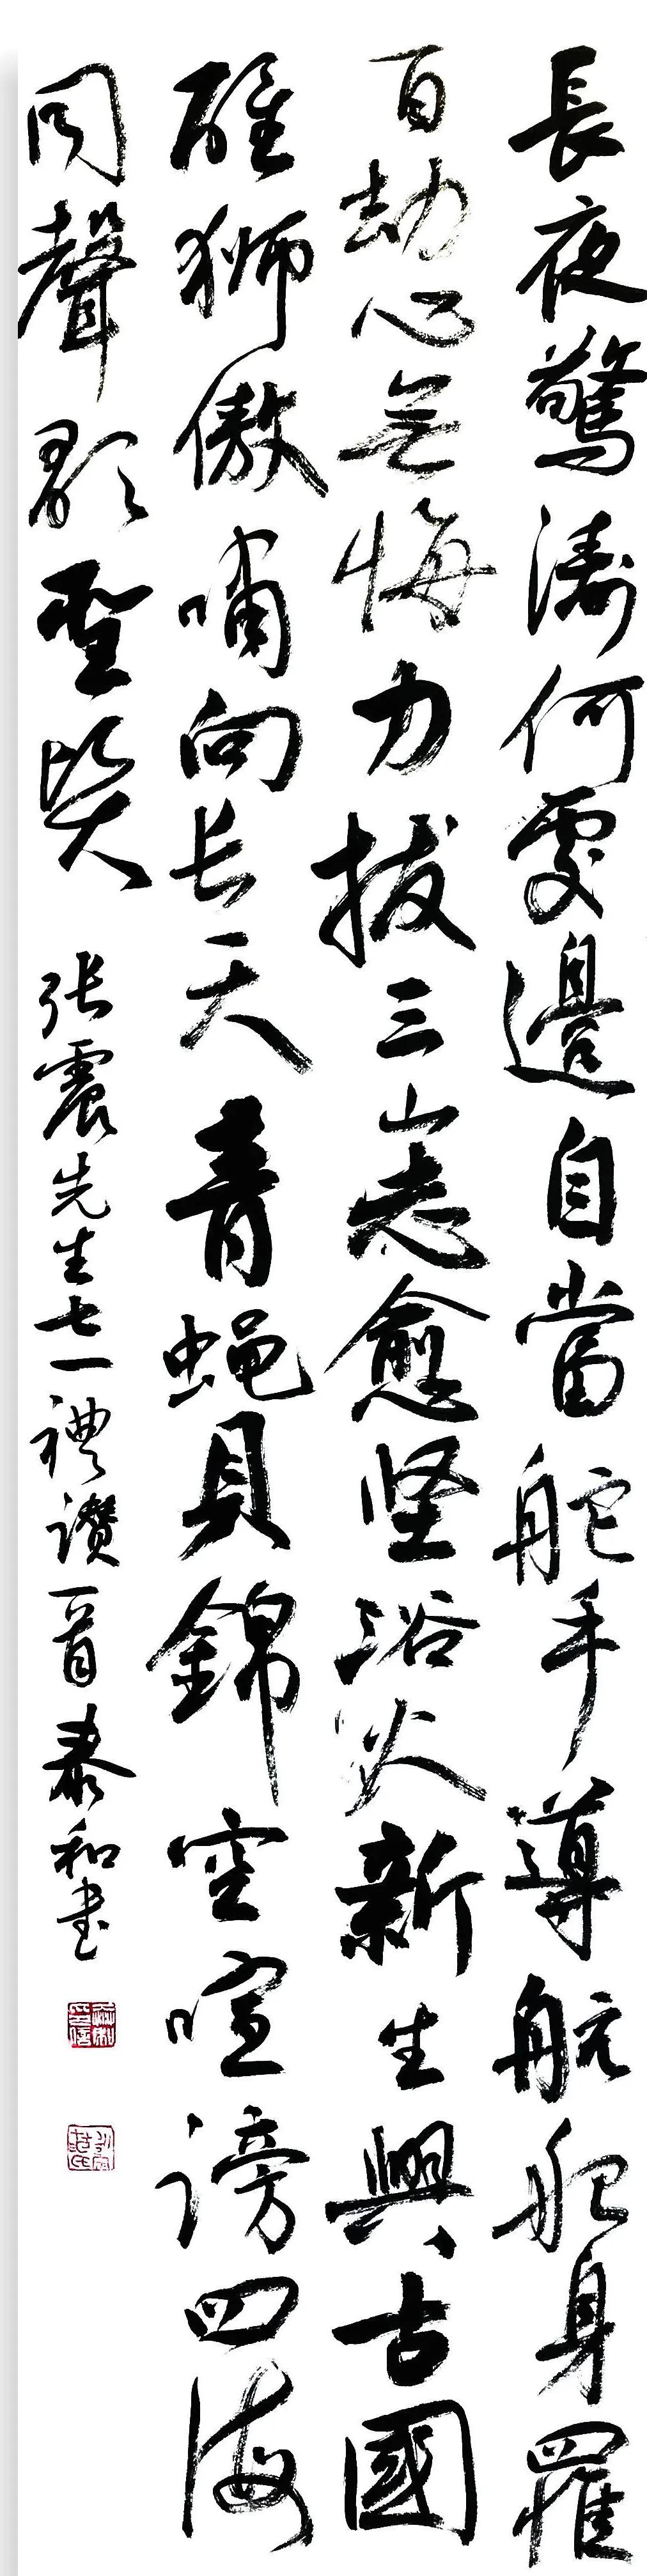 長夜驚濤何處邊自當舵手導航船身罹
百劫心無悔力拔三山志愈堅浴火新生興古國
雄獅傲嘯向长天青蝇貝錦空喧谤四海
同聲聖
张震先生七一禮讃一首泰和书